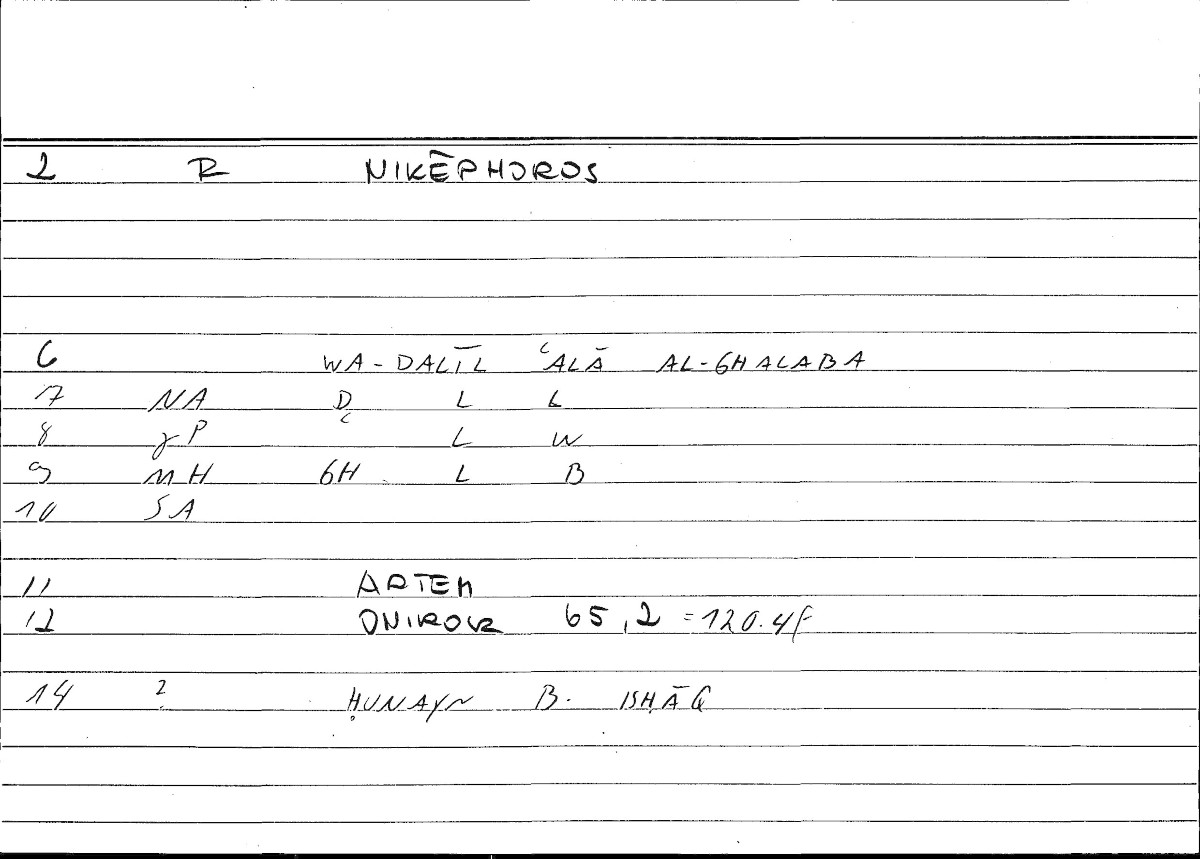 2 R NIKĒPHOROS
6 WA-DALĪL ʿALĀ AL-GHALABA
7 NA Ḍ L L
8 γP ʿ L W
9 MH GH L B
10 SA
11 ARTEM
12 ONIROCR 65,2 =120.4f
14 ? ḤUNAYN B. ISḤĀQ